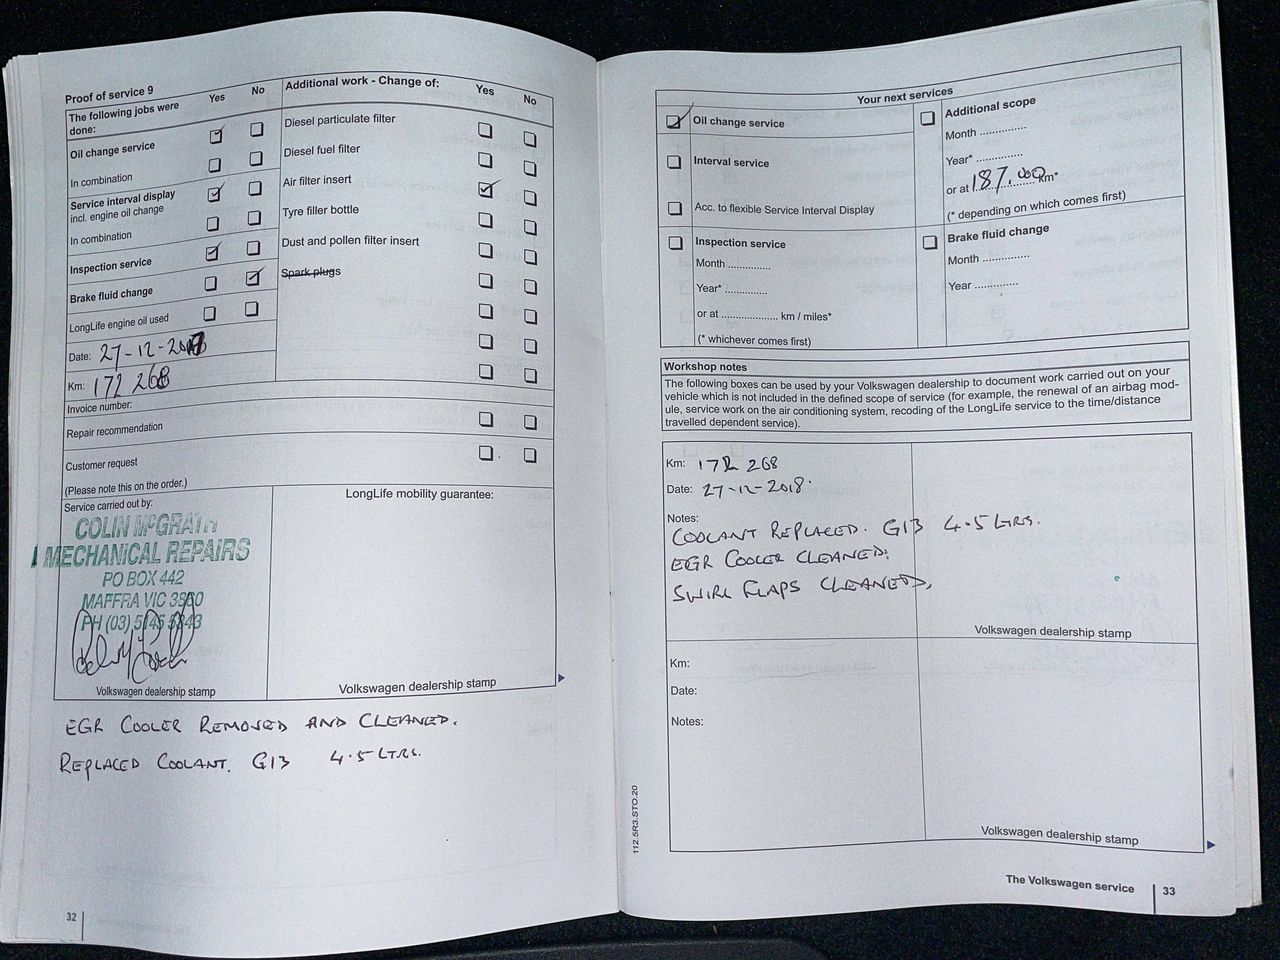 Proof of service 9
The following jobs were done:
Yes No
Oil change service
In combination
Service interval display
incl. engine oil change
In combination
Inspection service
Brake fluid change
LongLife engine oil used
Date: 27-12-
Km: 172 268
Additional work - Change of:
Yes No
Diesel particulate filter
Diesel fuel filter
Air filter insert
Tyre filler bottle
Dust and pollen filter insert
Spark plugs
Invoice number:
Repair recommendation
Customer request
(Please note this on the order.)
Service carried out by:
COLIN McGRATH
MECHANICAL REPAIRS
PO BOX 442
MAFFRA VIC 3860
PH (03) 5145
Volkswagen dealership stamp
LongLife mobility guarantee:
Volkswagen dealership stamp
EGR COOLER REMOVED AND CLEANED.
REPLACED COOLANT. G13 4.5 LTRS.
32
Your next services
Oil change service
Interval service
Acc. to flexible Service Interval Display
Additional scope
Month ..............
Year* ..............
or at 187,000 km*
(* depending on which comes first)
Inspection service
Month .............
Year* .............
or at .................... km / miles*
(* whichever comes first)
Brake fluid change
Month ..............
Year .............
Workshop notes
The following boxes can be used by your Volkswagen dealership to document work carried out on your
vehicle which is not included in the defined scope of service (for example, the renewal of an airbag mod-
ule, service work on the air conditioning system, recoding of the LongLife service to the time/distance
travelled dependent service).
Km: 172 268
Date: 27-12-2018.
Notes:
COOLANT REPLACED. G13 4.5 LTRS.
EGR COOLER CLEANED.
SWIRL FLAPS CLEANED.
Volkswagen dealership stamp
Km:
Date:
Notes:
Volkswagen dealership stamp
112.5R3.STO.20
The Volkswagen service 33